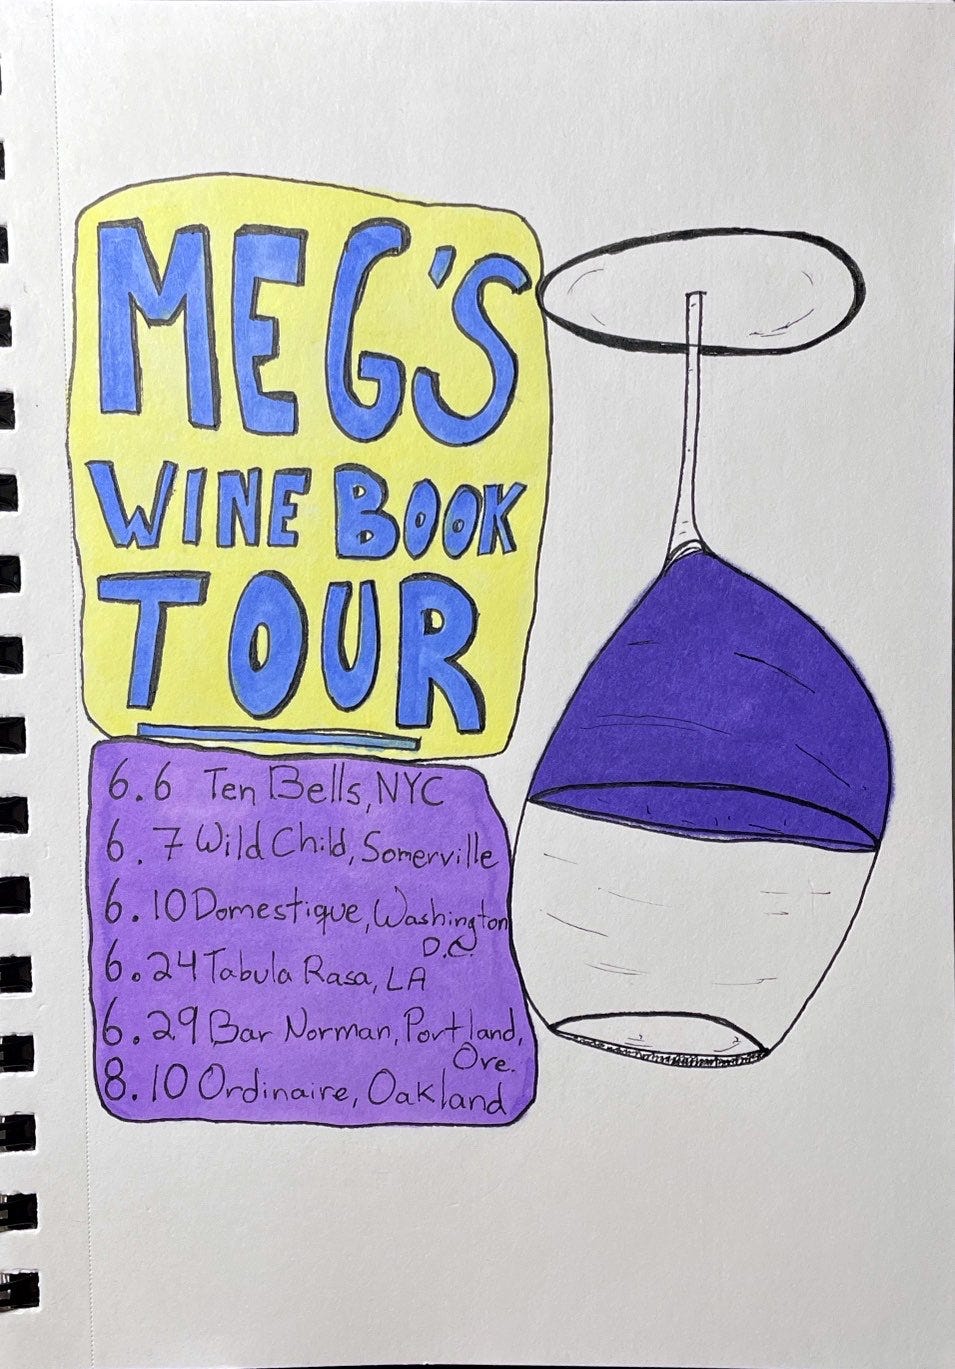 MEG'S
WINE BOOK
TOUR
6.6 Ten Bells, NYC
6.7 Wild Child, Somerville
6.10 Domestique, Washington
D.C.
6.24 Tabula Rasa, LA
6.29 Bar Norman, Portland,
Ore.
8.10 Ordinaire, Oakland